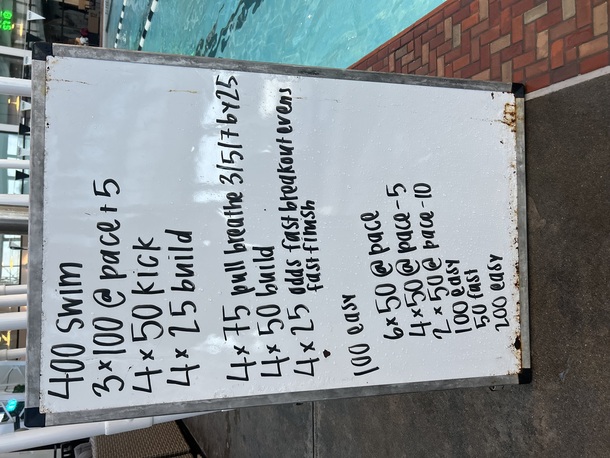 400 swim
3x100 @ pace + 5
4x50 kick
4x25 build
4x75 pull breathe 3/5/7 by 25
4x50 build
4x25 odds fast breakout evens
fast finish
100 easy
6x50 @ pace
4x50 @ pace-5
2x50 @ pace-10
100 easy
50 fast
200 easy